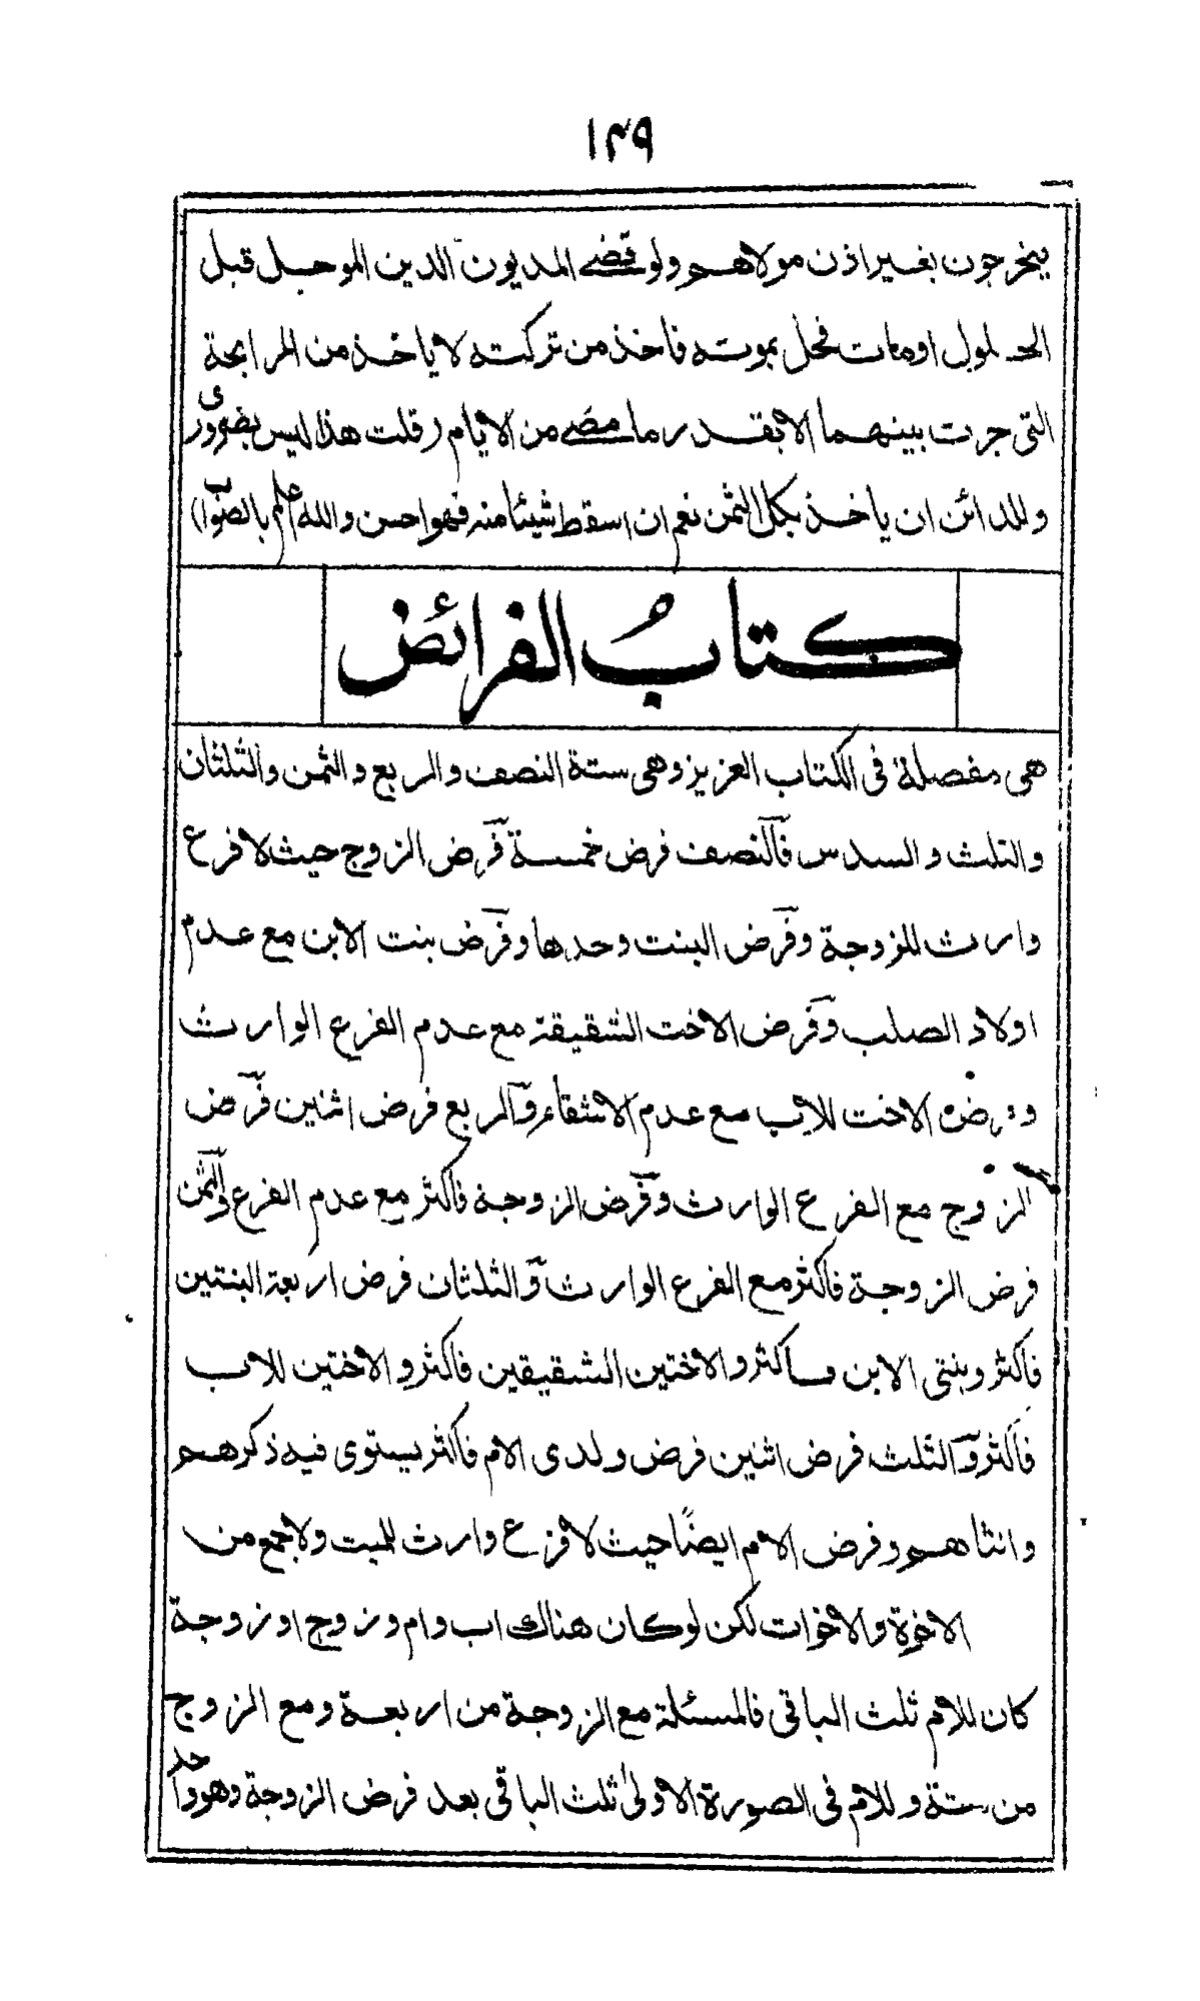 ١٣٩
يخرجون بغير اذن مولاهم ولو قضى المديون الدين الموجل قبل
الحلول او مات فحل بموته فاخذ من تركته لا ياخذ من المرابحة
التى جرت بينهما الا بقدر ما مضى من الايام (قلت هذا ليس بضرورى
وللدائن ان ياخذ بكل الثمن نعم ان اسقط شيئا منه فهو احسن والله اعلم بالصواب)
كتابُ الفرائض
هى مفصلة فى الكتاب العزيز وهى ستة النصف والربع والثمن والثلثان
والثلث والسدس فالنصف فرض خمسة فرض الزوج حيث لا فرع
وارث للزوجة وفرض البنت وحدها وفرض بنت الابن مع عدم
اولاد الصلب وفرض الاخت الشقيقة مع عدم الفرع الوارث
وفرض الاخت للاب مع عدم الاشقاء والربع فرض اثنين فرض
الزوج مع الفرع الوارث وفرض الزوجة فاكثر مع عدم الفرع والثمن
فرض الزوجة فاكثر مع الفرع الوارث والثلثان فرض اربعة البنتين
فاكثر وبنتى الابن فاكثر والاختين الشقيقين فاكثر والاختين للاب
فاكثر والثلث فرض اثنين فرض ولدى الام فاكثر يستوى فيه ذكرهم
وانثاهم وفرض الام ايضًا حيث لا فرع وارث للميت ولا جمع من
الاخوة والاخوات لكن لو كان هناك اب وام وزوج او زوجة
كان للام ثلث الباقى فالمسئلة مع الزوجة من اربعة ومع الزوج
من ستة وللام فى الصورة الاولى ثلث الباقى بعد فرض الزوجة وهو واحد